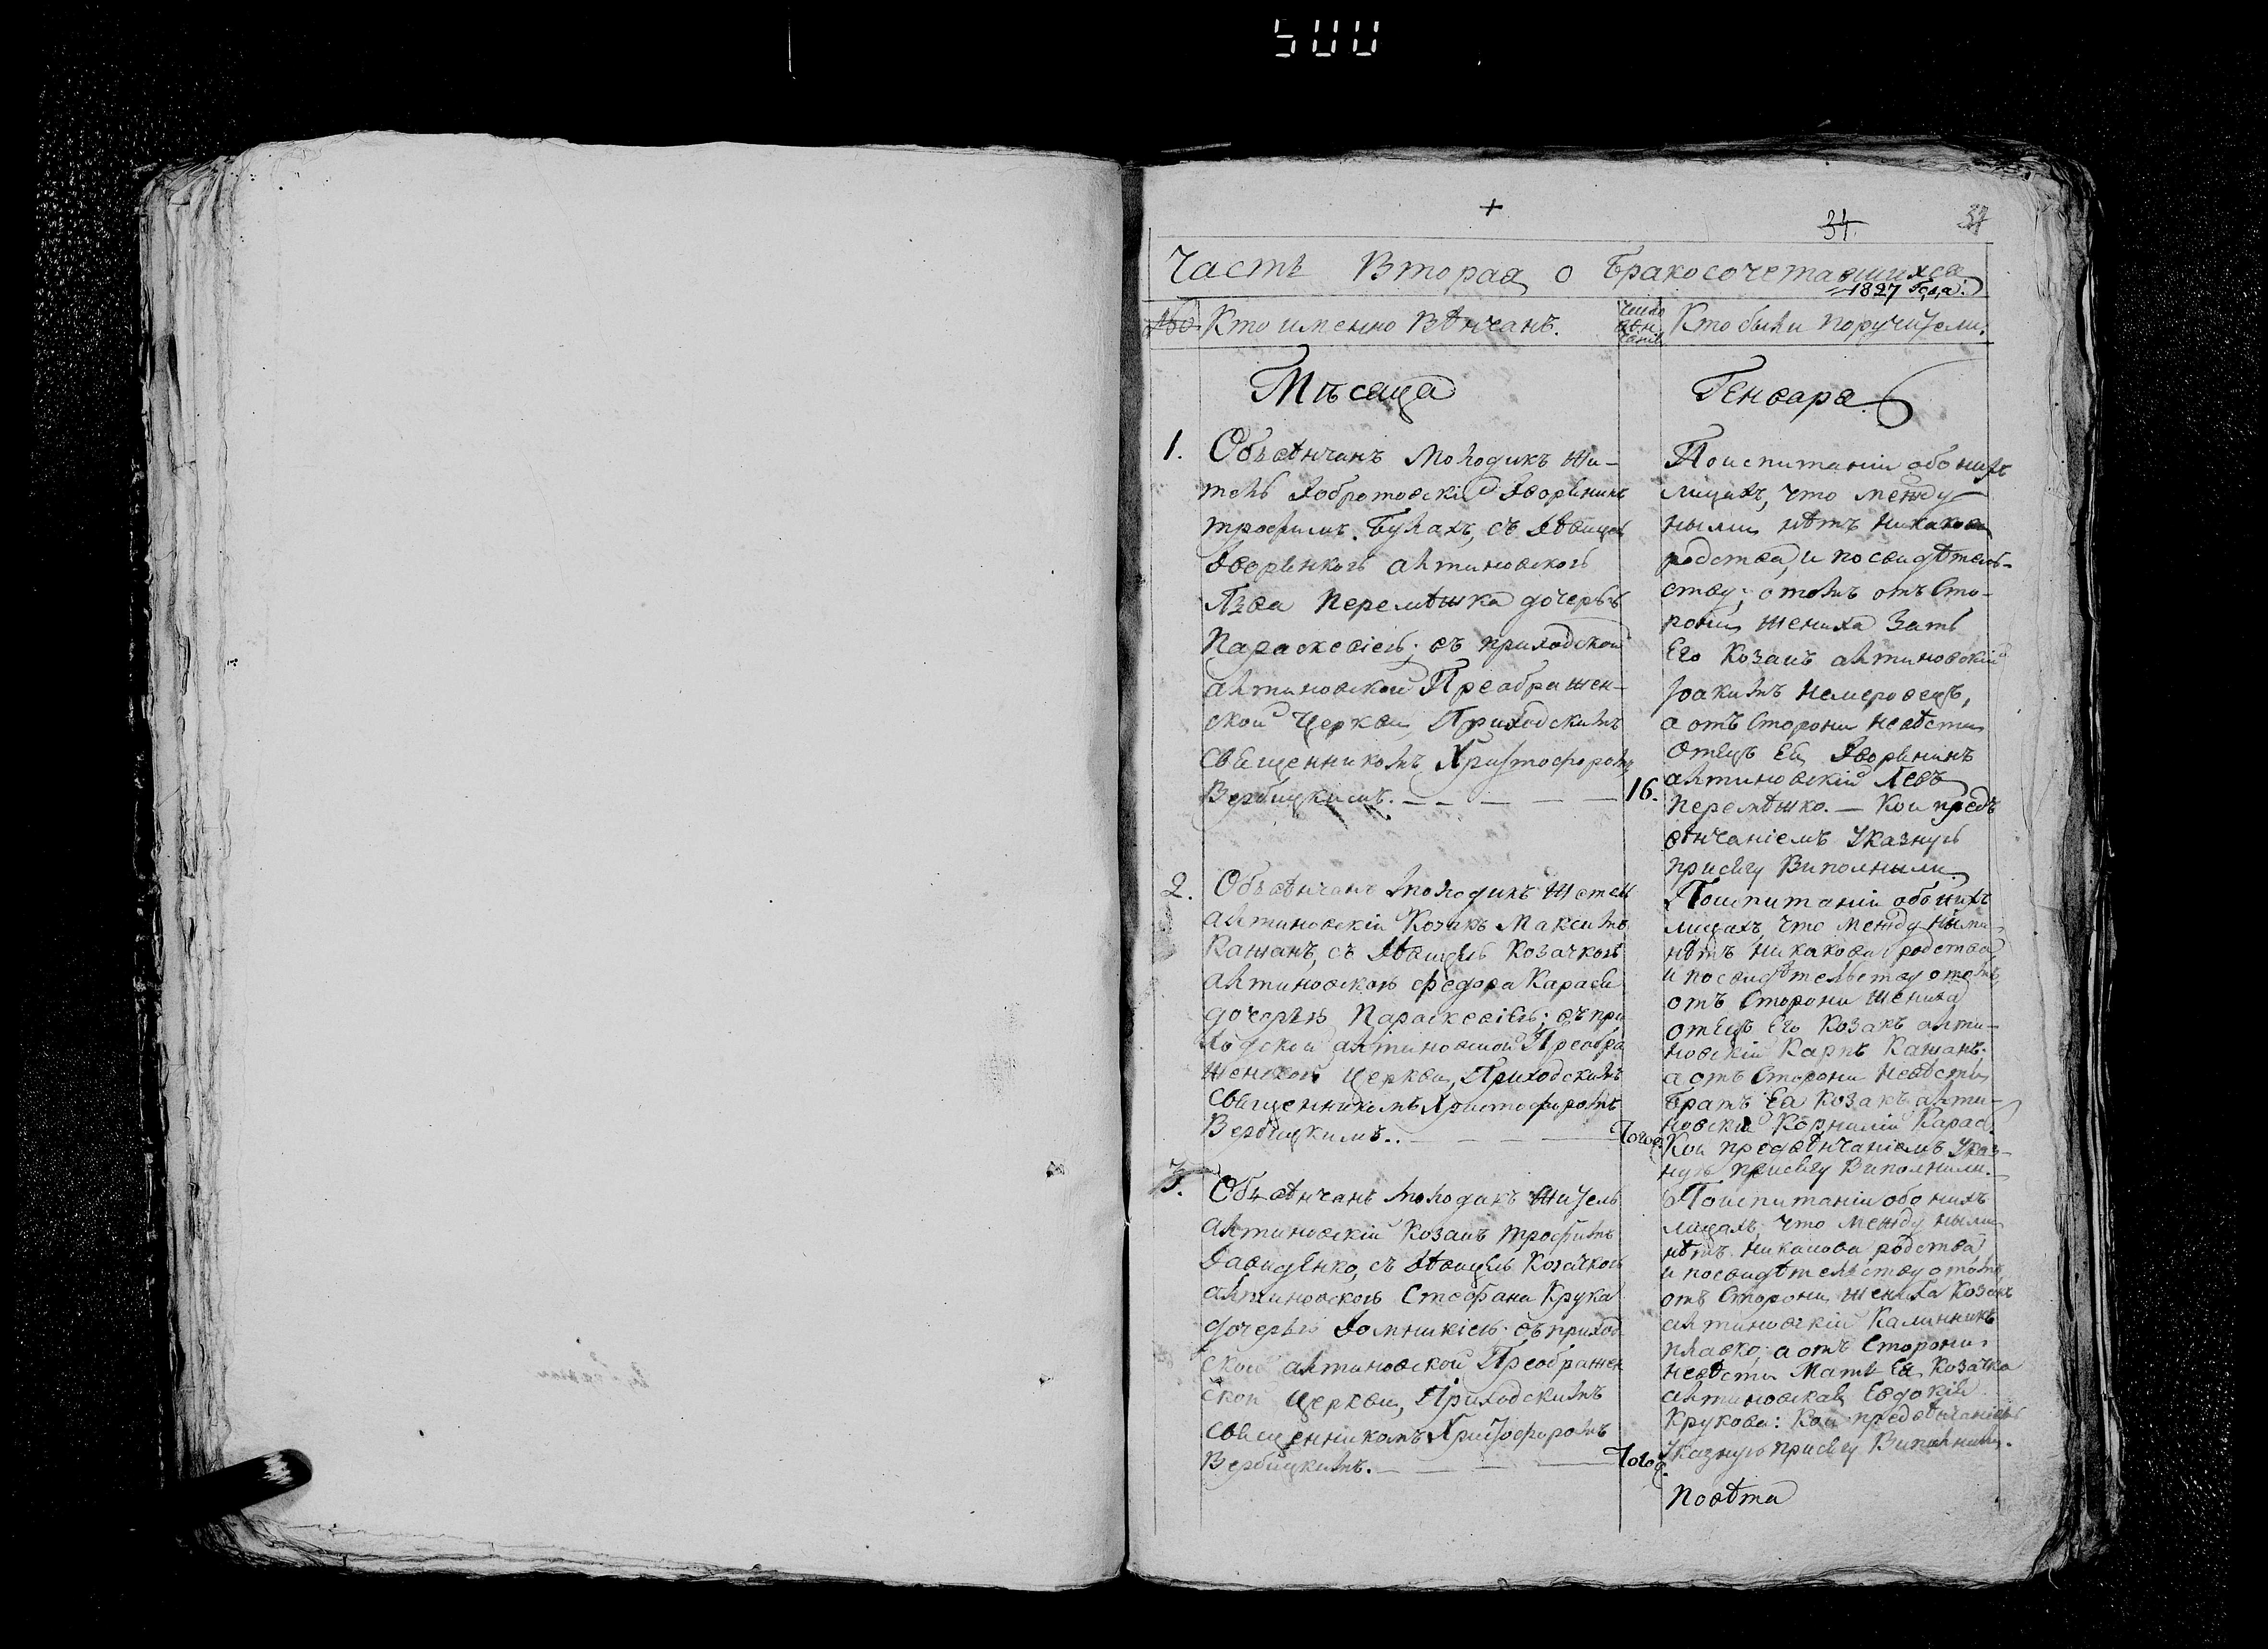 500
+
34.
Часть Вторая о Бракосочетавшихся
1827 Года:
№о Кто именно Вѣнчанъ. Число вѣнчанія Кто были поручители.
Мѣсяца Генваря
1. Обвѣнчанъ молодикъ жи-
тель Добротовскій дворянинъ
трофимъ Булахъ, съ дѣвицею
дворянкою алтиновскою
Лва Перемѣшка дочерью
Параскевіею; въ приходской
алтиновской Преображен-
ской Церкви, Приходскимъ
священникомъ Христофоромъ
Вербицкимъ. — — — — — 16.
Поиспитаніи обонихъ
лицахъ, что между
ными нѣтъ никакова
родства, и посвидѣтель-
ству; отомъ отъ Сто-
рони жениха Зять
Его Козакъ алтиновскій
Іоакимъ немеровецъ,
а отъ Сторони невѣсти
Отецъ Ея дворянинъ
алтиновскій Левъ
перемѣшко. — Кои предъ
вѣнчаніемъ Указную
присягу Виполныли.
2. Обвѣнчанъ молодикъ жител
алтиновскій Козакъ Максимъ
Кажанъ, съ дѣвицею Козачкою
алтиновскою федора Карася
дочерью Параскевіею; въ при
ходской алтиновской Преобра
женской Церкви, Приходскимъ
священникомъ Христофоромъ
Вербицкимъ.. — — — — Тогож.
Поиспитаніи обонихъ
лицахъ, что между ными
нѣтъ никакова родства,
и посвидѣтельству отомъ,
отъ Сторони жениха
отецъ Его Козакъ алти-
новскій Карпъ Кажанъ.
а отъ Сторони невѣсты
братъ Ея Козакъ алти-
новскій Корнилій Карас
Кои предвѣнчаніемъ Указ-
ную присягу Виполнили.
3. Обвѣнчанъ молодикъ житель
алтиновскій Козакъ трофимъ
Давиденко, съ дѣвицею Козачкою
алтиновскою Стефана Крука
дочерью Домникіею; въ приход
ской алтиновской Преображен
ской Церкви, Приходскимъ
священникомъ Христофоромъ
Вербицкимъ. — — — — Тогож.
Поиспитаніи обонихъ
лицахъ, что между ными
нѣтъ никакова родства,
и посвидѣтельству отомъ,
отъ Сторони жениха Козакъ
алтиновскій Калинникъ
плавко; а отъ Сторони
невѣсти Мать Ея Козачка
алтиновская Евдокія
Крукова: Кои предвѣнчаніемъ
Указную присягу Виполнили.
Повѣта